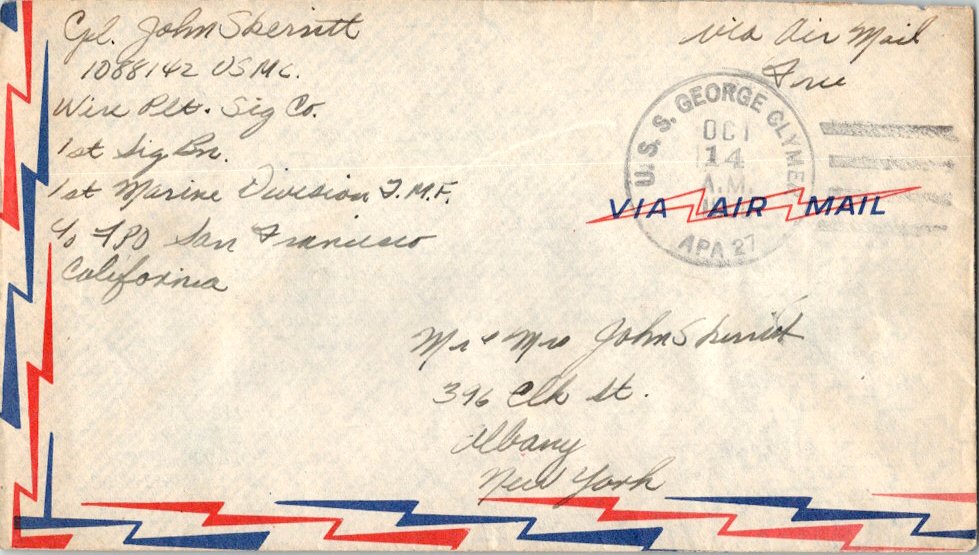 Cpl. John Skerritt
1088142 USMC.
Wire Plt. Sig Co.
1st Sig Bn.
1st Marine Division F.M.F.
c/o FPO San Francisco
California
via Air Mail
Free
U.S.S. GEORGE CLYMER
OCT
14
A.M.
APA 27
VIA AIR MAIL
Mr & Mrs John Skerritt
396 Elk St.
Albany
New York